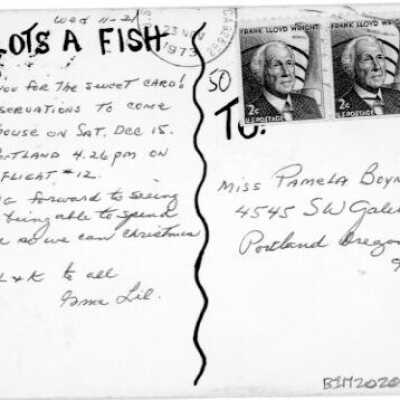 Wed 11-21
LOTS A FISH
YOU FOR THE SWEET CARD!
SERVATIONS TO COME
HOUSE ON SAT, DEC 15.
PORTLAND 4:26 PM ON
FLIGHT #12.
G forward to seeing
being able to spend
so we can Christmas
L & K to all
Gma Lil.
23 NOV
1973
FRANK LLOYD WRIGHT
2¢
U.S. POSTAGE
FRANK LLOYD WRIGHT
2¢
U.S. POSTAGE
50
TO:
Miss Pamela Boyn
4545 SW Gale
Portland Oregon
9
BIM2020